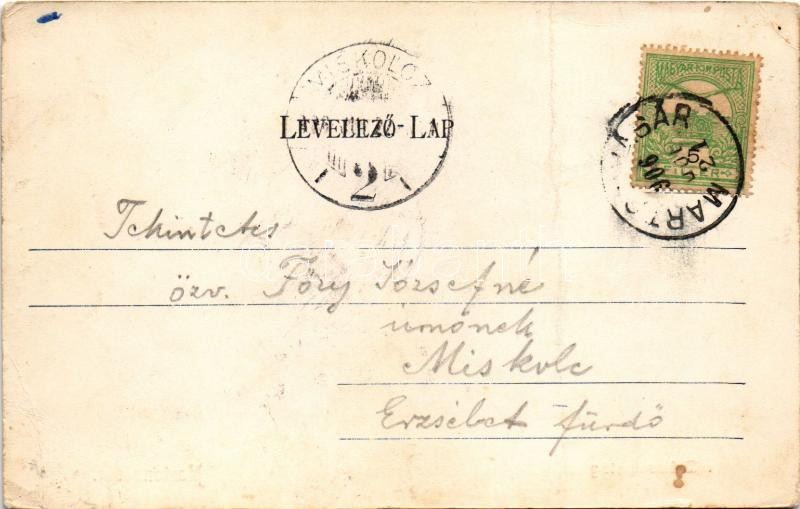 MISKOLCZ
MAGYAR KIR. POSTA
LEVELEZŐ-LAP
2
906
MART
VÁSÁR
Tekintetes
özv. Főry Józsefné
úrnőnek
Miskolc
Erzsébet fürdő